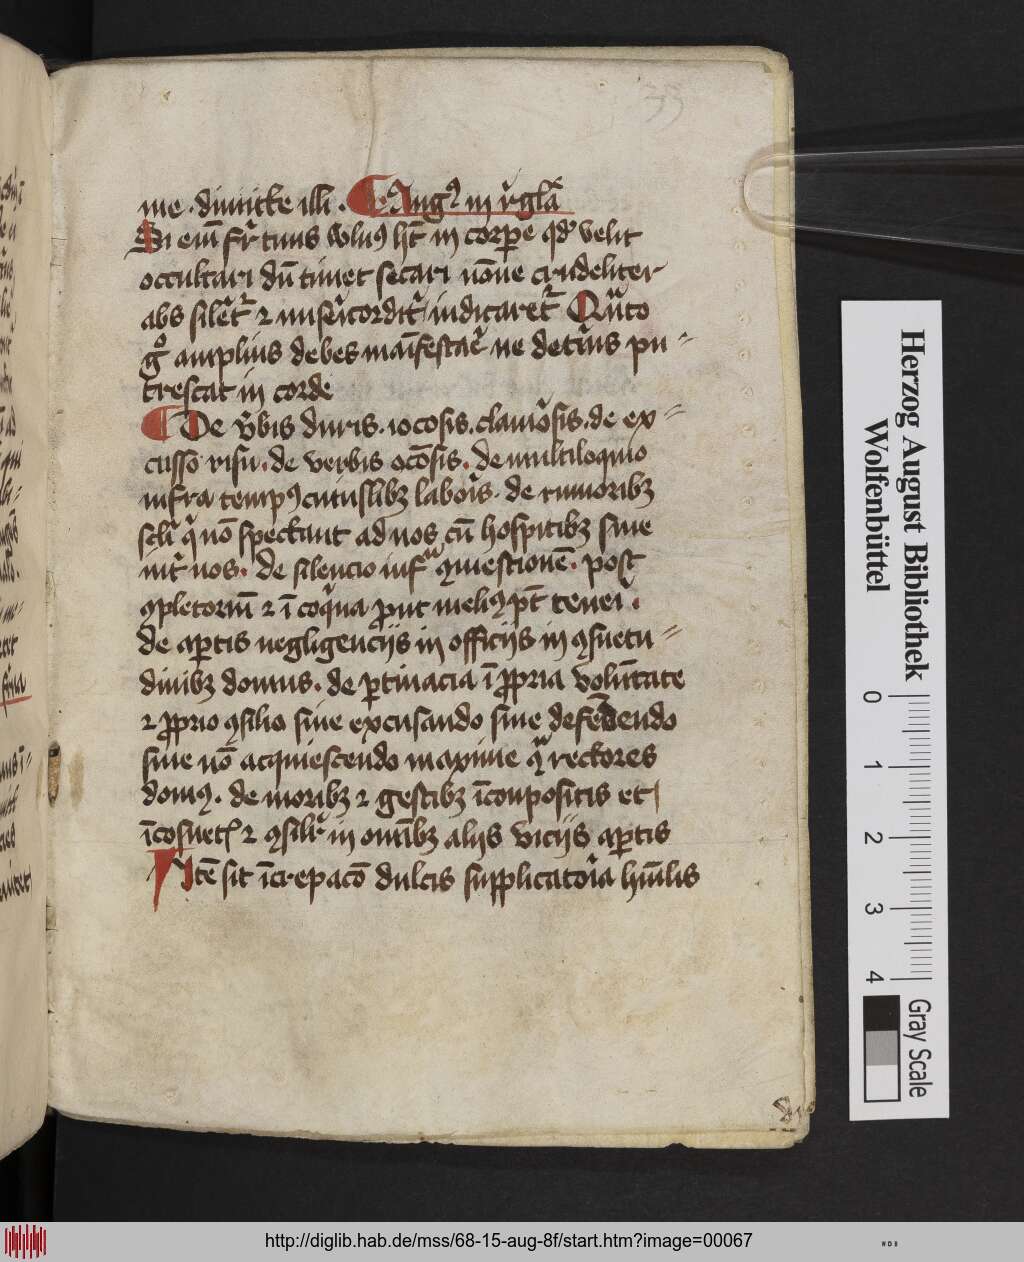 33
me . dimitte illi . Augꝰ in rͥgla
Si eni͞ fr͞ tuus wlnꝰ ht͞ in corꝑe qd͛ velit
occultari du͞ timet secari no͞ne crudeliter
abs silet͛ ⁊ misericordit͛ iudicaret͛ Quᷓto
gͦ amplius debes mai͞festaᷓe ne deteͥus pu〃
trescat in corde
De v͛bis duris . iocosis . clamoͦsis . de ex〃
cusso risu . de verbis oco͞sis . de multiloquio
infra tempꝰ cuiuslibꝫ laboͥs . de rumoribꝫ
scl͛i qͥ no͞ spectant ad nos cu͞ hospitibꝫ siue
int͛ nos . de silencio infᷓ quiescione͞ . post
ꝯpletoriu͞ ⁊ i͞ coqͥna ꝓut meliꝰ pt͞ teneri .
de aꝑtis negligencijs in officijs in ꝯsuetu〃
dinibꝫ domus . de ꝑtinacia i͞ ꝓpria volu͞tate
⁊ ꝓprio ꝯsilio siue excusando siue defendendo
siue no͞ acquiescendo maxime qᷓ rectores
domꝰ . de moribꝫ ⁊ gestibꝫ i͞conpositis et
i͞cosuet͛ ⁊ ꝯsil͛r in omi͞bꝫ alijs vicijs aꝑtis
Ite͞ sit i͞crepaco͞ dulcis supplicatoͥa hu͞ilis
Herzog August Bibliothek
Wolfenbüttel
0 1 2 3 4
Gray Scale
http://diglib.hab.de/mss/68-15-aug-8f/start.htm?image=00067
WDB